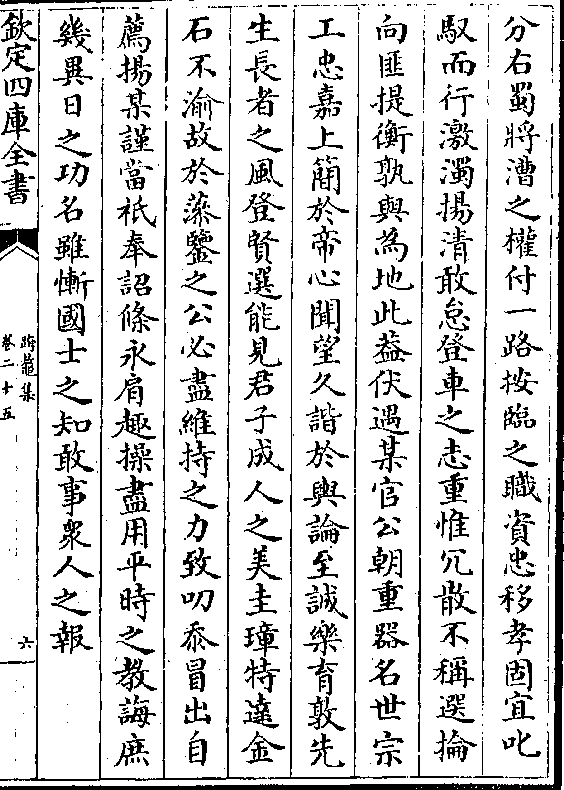 分右蜀將漕之權付一路按臨之職資忠移孝固宜叱
馭而行激濁揚清敢怠登車之志重惟冗散不稱選掄
向匪提衡孰與為地此葢伏遇某官公朝重器名世宗
工忠嘉上簡於帝心聞望久諧於輿論至誠樂育敦先
生長者之風登賢選能見君子成人之美圭璋特達金
石不渝故於藻鑒之公必盡維持之力致叨忝冒出自
薦揚某謹當祗奉詔條永肩趣操盡用平時之教誨庶
幾異日之功名雖慚國士之知敢事衆人之報
欽定四庫全書
跨鼇集
卷二十五
六